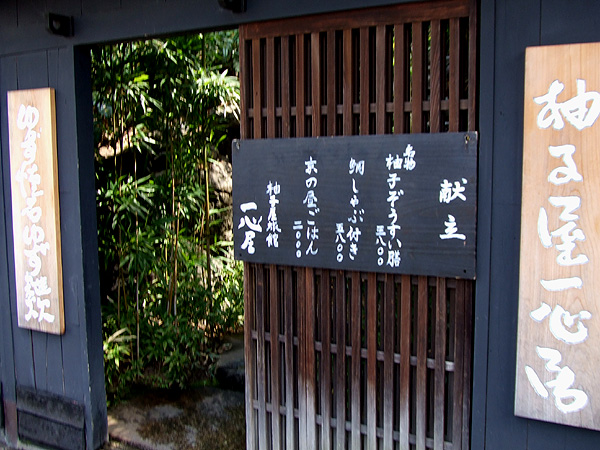 柚子屋一心居
献立
名物
柚子ぞうすい膳
三八〇〇
鯛しゃぶ付き
五八〇〇
京の昼ごはん
二〇〇〇
柚子屋旅館
一心居
ゆず ゆず雑炊